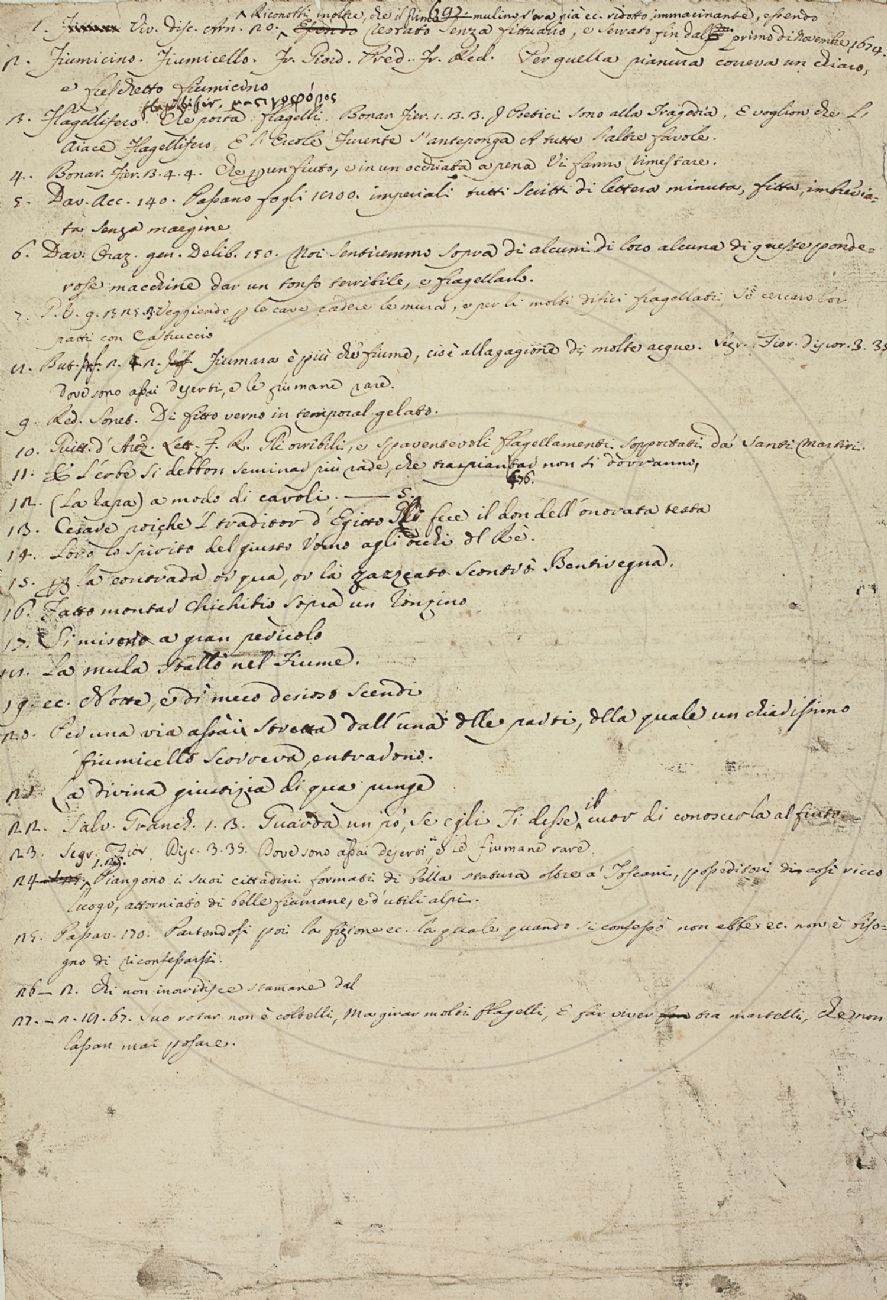 Riconobbi inoltre, che il fiume mulino s'era già ec. ridotto immacinante, essendo
1. Viv. Disc. Arn. 20. essendo restato senza fittuario, e serrato fin dal primo di Novembre 1674.
2. Fiumicino. Fiumicello. Fr. Giord. Pred. Fr. Red. Per quella pianura correva un chiaro,
e fiumicino
3. Flagellifero. Che porta flagelli. Bonar. Fier. 1. 3. 3. I Poetici sono alla Tragedia, E voglion che L'
Aiace flagellifero, E l'Ercole furente s'anteponga A tutte l'altre favole.
4. Bonar. Fier. 3. 4. 4. Che un fiuto, e in un occhiata a pena Vi fanno rimestare.
5. Dav. Acc. 140. Passano fogli 1200. imperiali tutti scritti di lettera minuta, fitta, imbrevia-
ta senza margine
6. Dav. Oraz. gen. Delib. 150. Noi sentiremmo sopra di alcuni di loro alcuna di queste ponde-
rose macchine dar un tonfo terribile, e flagellarlo.
7. Veggendo le cave cadere le mura, e per li molti difici fragellati, si cercaro lor
patti con Castruccio
Fiumara è più che fiume, cioè allagagione di molte acque. Segr. Fior. discor. 3. 39
dove sono assai deserti, e le fiumane rare.
9. Red. Sonet. Di fitto verno in temporal gelato.
10. Guitt. d'Arez. Lett. F. R. Gli orribili, e spaventevoli flagellamenti sopportati da' Santi Martiri.
11. L'erbe si debbon seminar più rade, che traspiantar non si dovranno,
12. (La rapa) a modo di cavoli.
13. Cesare poichè 'l traditor d'Egitto Gli fece il don dell'onorata testa
14. Lodò lo spirito del giusto Uomo agli occhi del Rè.
15. la contrada or qua, or là zazzeato scontrò Bentivegna.
16. Fatto montar Chichibio sopra un ronzino
17. Si misono a gran pericolo
18. La mula stallò nel fiume.
19. ec. Notte, e dì meco desioso scendi
20. Per una via assai stretta dall'una delle parti, della quale un chiarissimo
fiumicello scorreva, entradono.
21. La divina giustizia di qua punge
22. Salv. Granch. 1. 3. Guarda un pò, se egli Ti desse il cuor di conoscerla al fiuto.
23. Segr. Fior. Disc. 3. 39. Dove sono assai deserti, e le fiumane rare.
24. Piangono i suoi cittadini formati di bella statura oltre a' Toscani, posseditori di così ricco
luogo, attorniato di belle fiumane, e d'utili alpi.
25. Passav. 170. Partendosi poi la fizione ec. la quale quando si confessò non ebbe ec. non è biso-
gno di riconfessarsi.
26. — 2. Chi non inaridisce stamane dal
27. — 2. 19. 67. Suo rotar non è coltelli, Ma girar molti flagelli, E far viver tra martelli, che non
lassan mai posare.